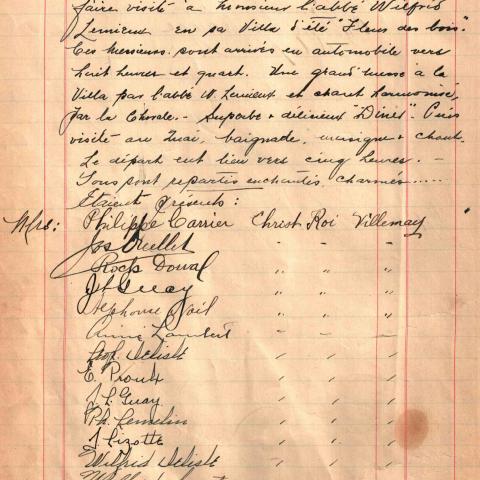 faire visite à Monsieur l'abbé Wilfrid
Lemieux en sa Villa d'été "Fleur des bois".
Ces messieurs sont arrivés en automobile vers
huit heures et quart. Une grand'messe à la
Villa par l'abbé W. Lemieux et chant harmonisé,
par la Chorale. - Superbe & délicieux "Dîner". Puis
visite au quai, baignade, musique & chant.
Le départ eut lieu vers cinq heures. -
Tous sont repartis enchantés, charmés.....
Étaient présents:
Mrs: Philippe Carrier Christ Roi Villemay
Jos Ouellet " " "
Rock Doval " " "
J. Guay " " "
Alphonse " " "
Lambert - - -
Delisle " " "
E. Proulx " " "
J. L. Guay " " "
Ph. Gemelin " " "
J. Lizotte " " "
Wilfrid Delisle " " "